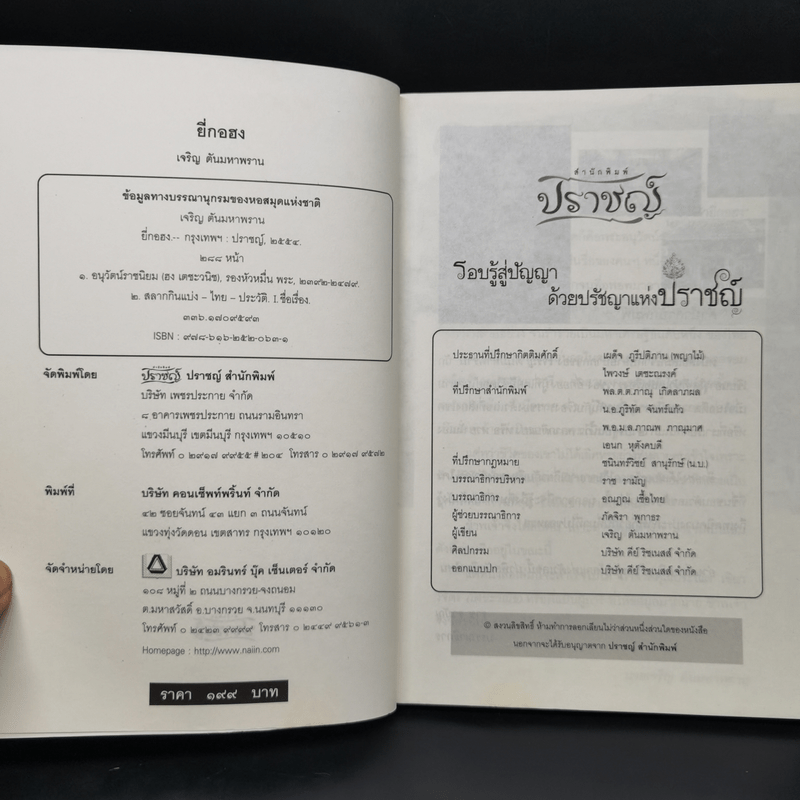 ยี่กอฮง
เจริญ ตันมหาพราน
ข้อมูลทางบรรณานุกรมของหอสมุดแห่งชาติ
เจริญ ตันมหาพราน
ยี่กอฮง.-- กรุงเทพฯ : ปราชญ์, ๒๕๕๔.
๒๘๘ หน้า
๑. อนุวัตน์ราชนิยม (ฮง เตชะวนิช), รองหัวหมื่น พระ, ๒๓๙๒-๒๔๗๙.
๒. สลากกินแบ่ง – ไทย – ประวัติ. I.ชื่อเรื่อง.
๓๓๖.๑๗๐๙๕๙๓
ISBN : ๙๗๘-๖๑๖-๒๕๒-๐๖๓-๑
จัดพิมพ์โดย ปราชญ์ ปราชญ์ สำนักพิมพ์
บริษัท เพชรประกาย จำกัด
๘ อาคารเพชรประกาย ถนนรามอินทรา
แขวงมีนบุรี เขตมีนบุรี กรุงเทพฯ ๑๐๕๑๐
โทรศัพท์ ๐ ๒๙๑๗ ๙๙๕๕ # ๒๐๔ โทรสาร ๐ ๒๙๑๗ ๙๕๗๒
พิมพ์ที่ บริษัท คอนเซ็พท์พริ้นท์ จำกัด
๔๒ ซอยจันทน์ ๔๓ แยก ๓ ถนนจันทน์
แขวงทุ่งวัดดอน เขตสาทร กรุงเทพฯ ๑๐๑๒๐
จัดจำหน่ายโดย บริษัท อมรินทร์ บุ๊ค เซ็นเตอร์ จำกัด
๑๐๘ หมู่ที่ ๒ ถนนบางกรวย-จงถนอม
ต.มหาสวัสดิ์ อ.บางกรวย จ.นนทบุรี ๑๑๑๓๐
โทรศัพท์ ๐ ๒๔๒๓ ๙๙๙๙ โทรสาร ๐ ๒๔๔๙ ๙๕๖๑-๓
Homepage : http://www.naiin.com
ราคา ๑๙๙ บาท
สำนักพิมพ์
ปราชญ์
รอบรู้สู่ปัญญา
ด้วยปรัชญาแห่งปราชญ์
ประธานที่ปรึกษากิตติมศักดิ์ เผด็จ ภูรีปติภาน (พญาไม้)
ไพวงษ์ เตชะณรงค์
ที่ปรึกษาสำนักพิมพ์ พล.ต.ต.ภาณุ เกิดลาภผล
น.อ.ภูริทัต จันทร์แก้ว
พ.อ.ม.ล.ภาณพ ภาณุมาศ
เอนก หุตังคบดี
ที่ปรึกษากฎหมาย ชนินทร์วิชย์ สานุรักษ์ (น.บ.)
บรรณาธิการบริหาร ราช รามัญ
บรรณาธิการ อณฏณ เชื้อไทย
ผู้ช่วยบรรณาธิการ ภัคจิรา พุกาธร
ผู้เขียน เจริญ ตันมหาพราน
ศิลปกรรม บริษัท คีย์ ริชเนสส์ จำกัด
ออกแบบปก บริษัท คีย์ ริชเนสส์ จำกัด
© สงวนลิขสิทธิ์ ห้ามทำการลอกเลียนไม่ว่าส่วนหนึ่งส่วนใดของหนังสือ
นอกจากจะได้รับอนุญาตจาก ปราชญ์ สำนักพิมพ์